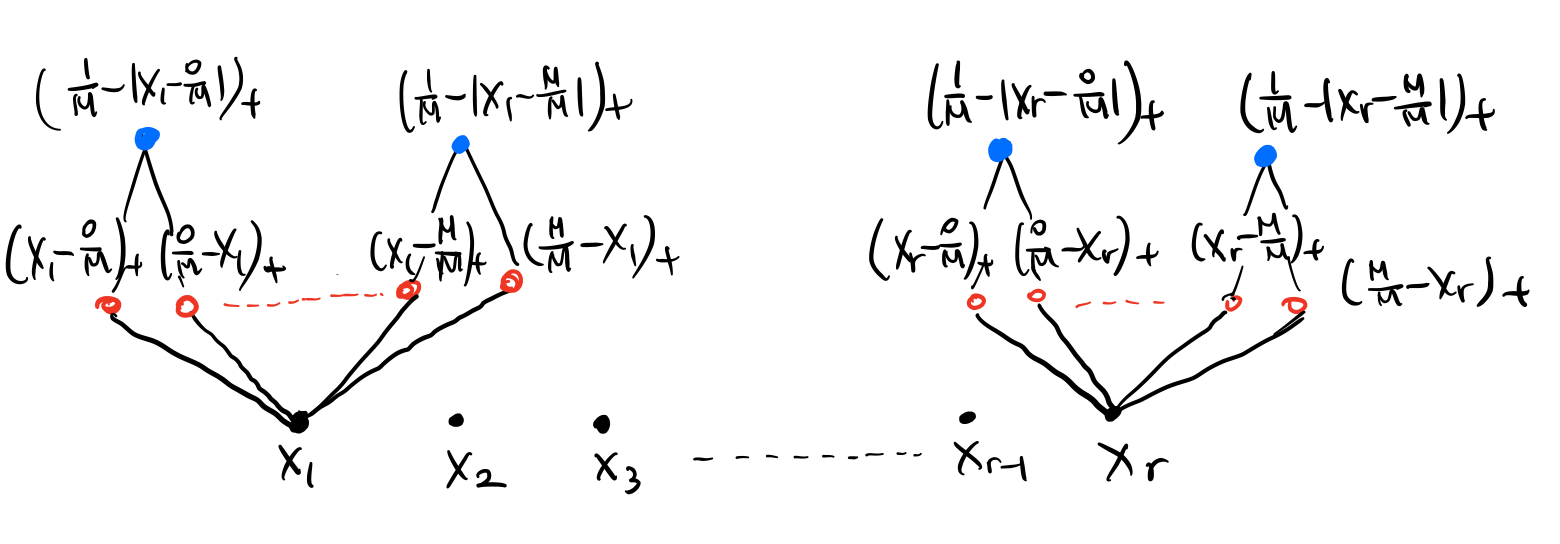 (1/M-|X1-0/M|)+ (1/M-|X1-M/M|)+ (1/M-|Xr-0/M|)+ (1/M-|Xr-M/M|)+
(X1-0/M)+ (0/M-X1)+ (X1-M/M)+ (M/M-X1)+ (Xr-0/M)+ (0/M-Xr)+ (Xr-M/M)+ (M/M-Xr)+
X1 X2 X3 Xr-1 Xr